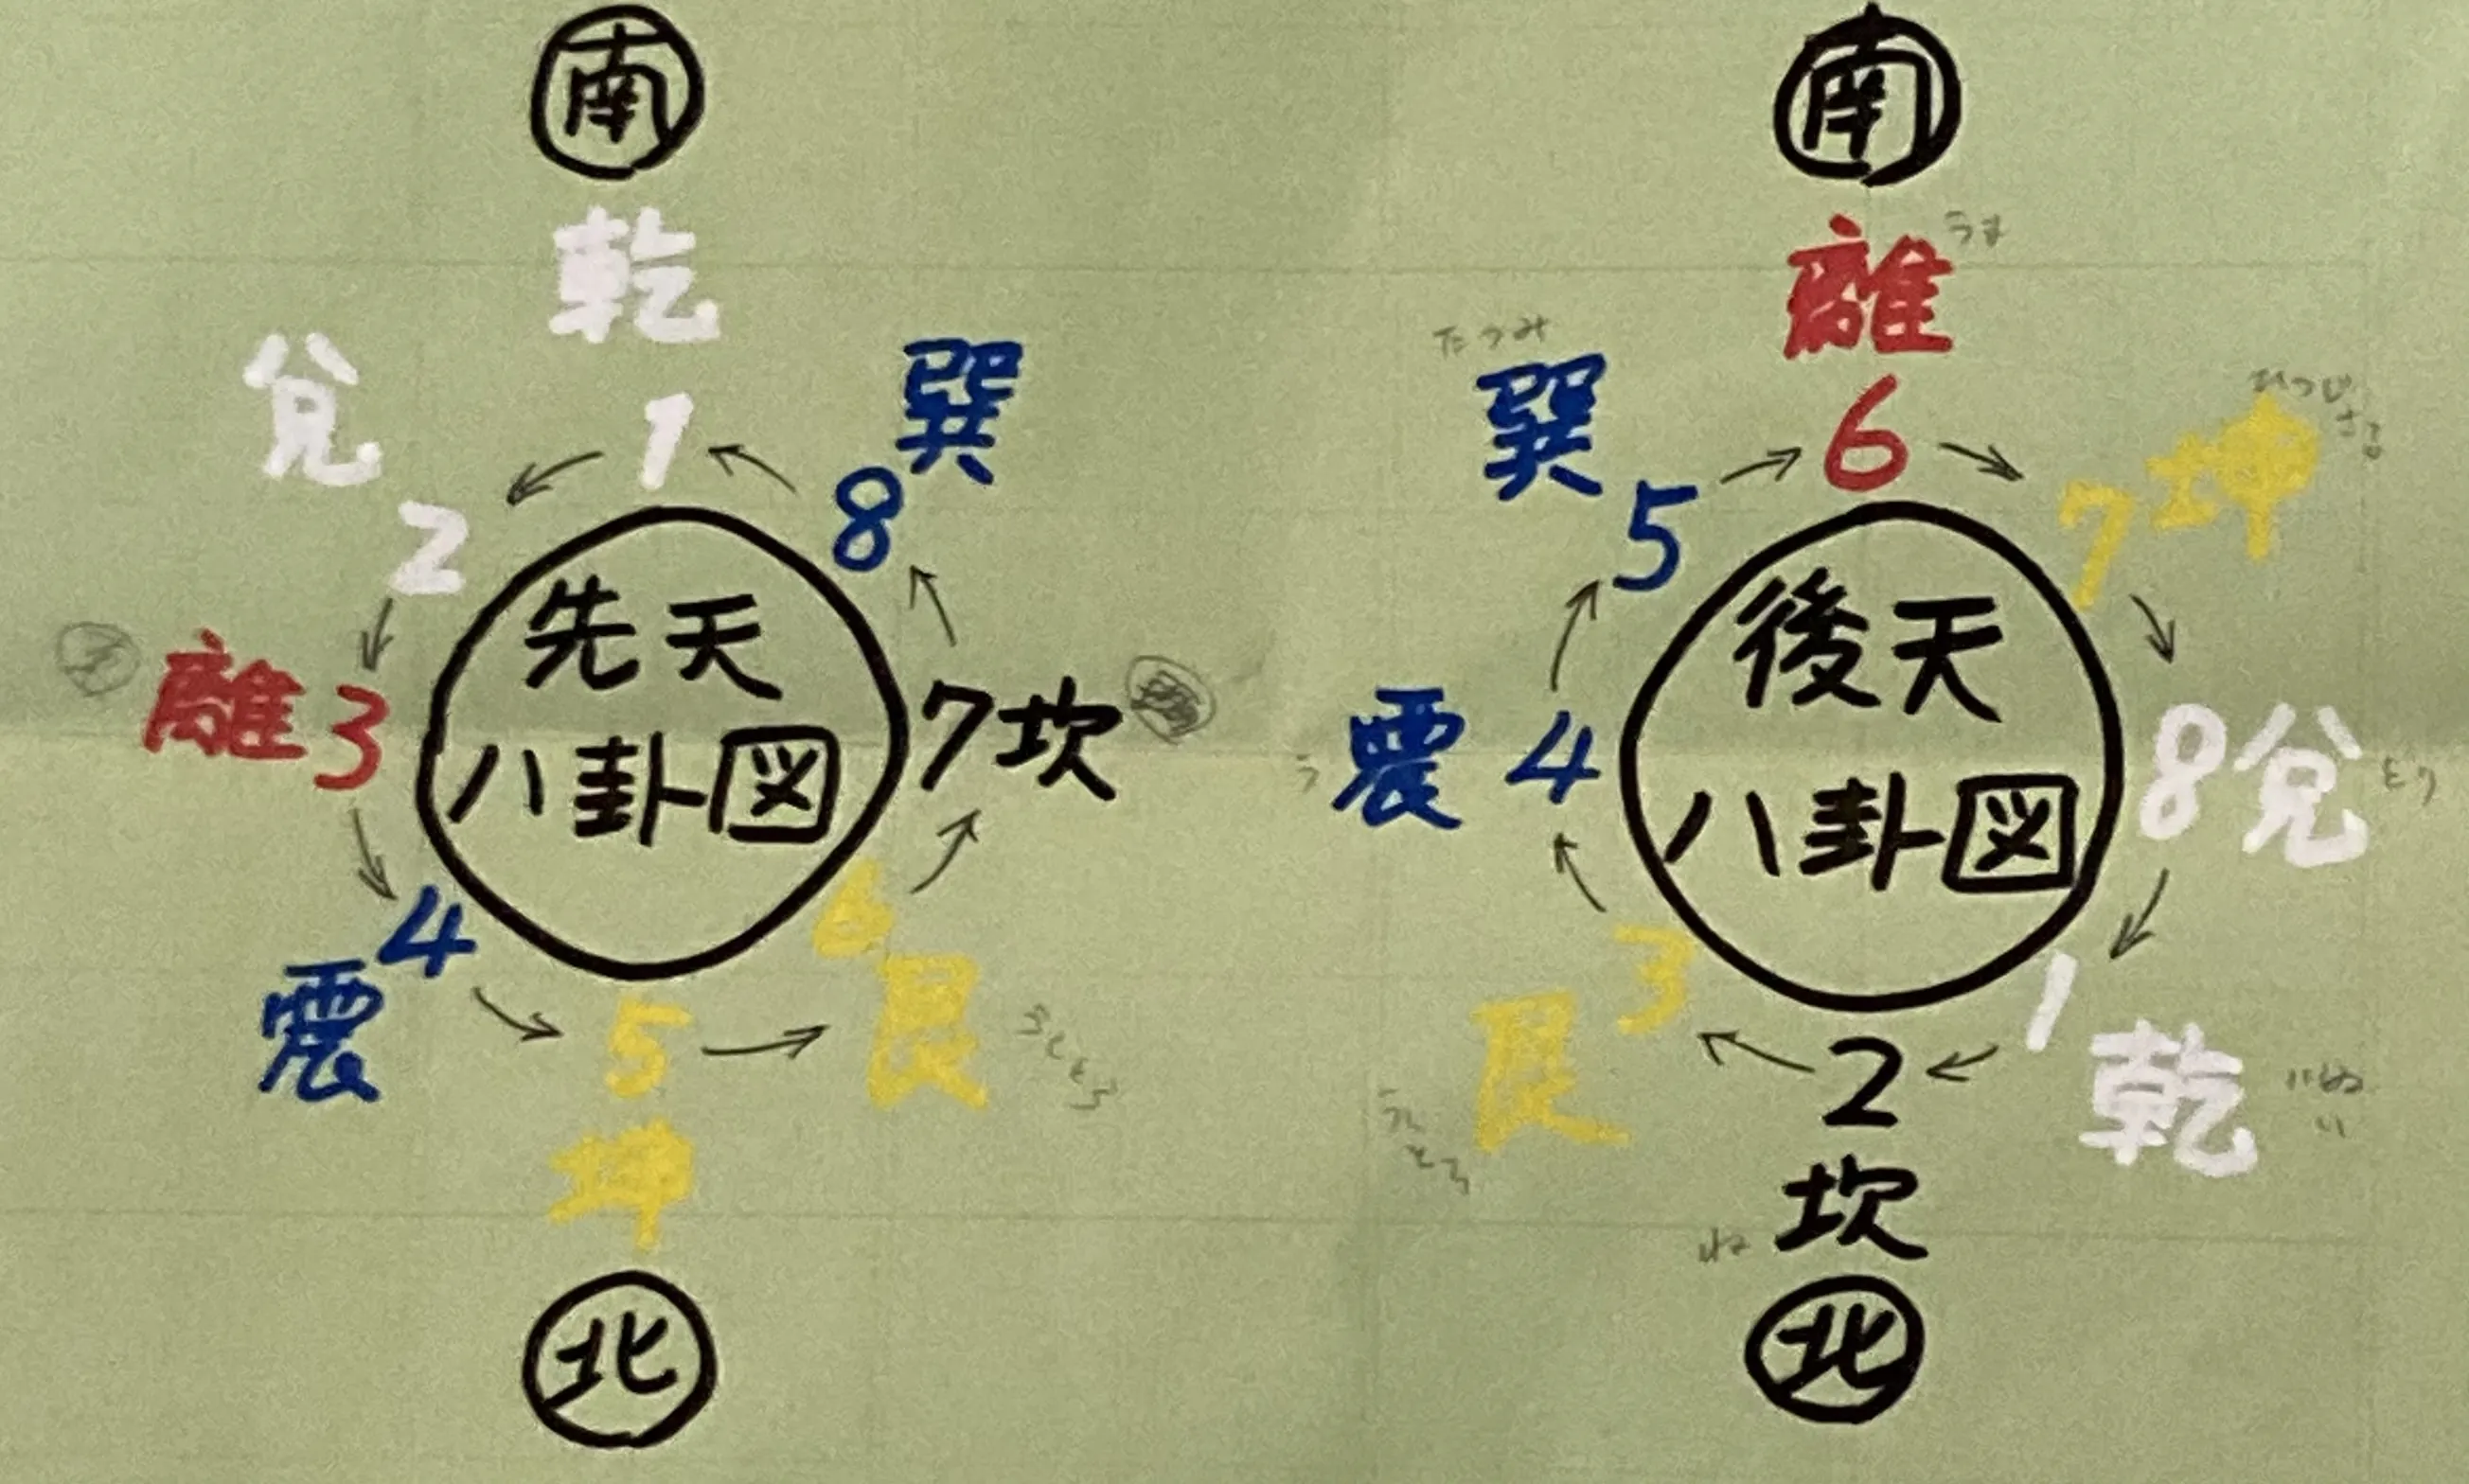 南
乾
1
兌
2
離 3
4
震
5
坤
6
艮
うしとら
7 坎
8
巽
先天
八卦図
北
南
離
うま
6
たつみ
巽
5
ひつじ
さる
7 坤
震 4
う
8 兌
とり
3
艮
うし
とら
1
乾
いぬ
い
2
坎
ね
後天
八卦図
北